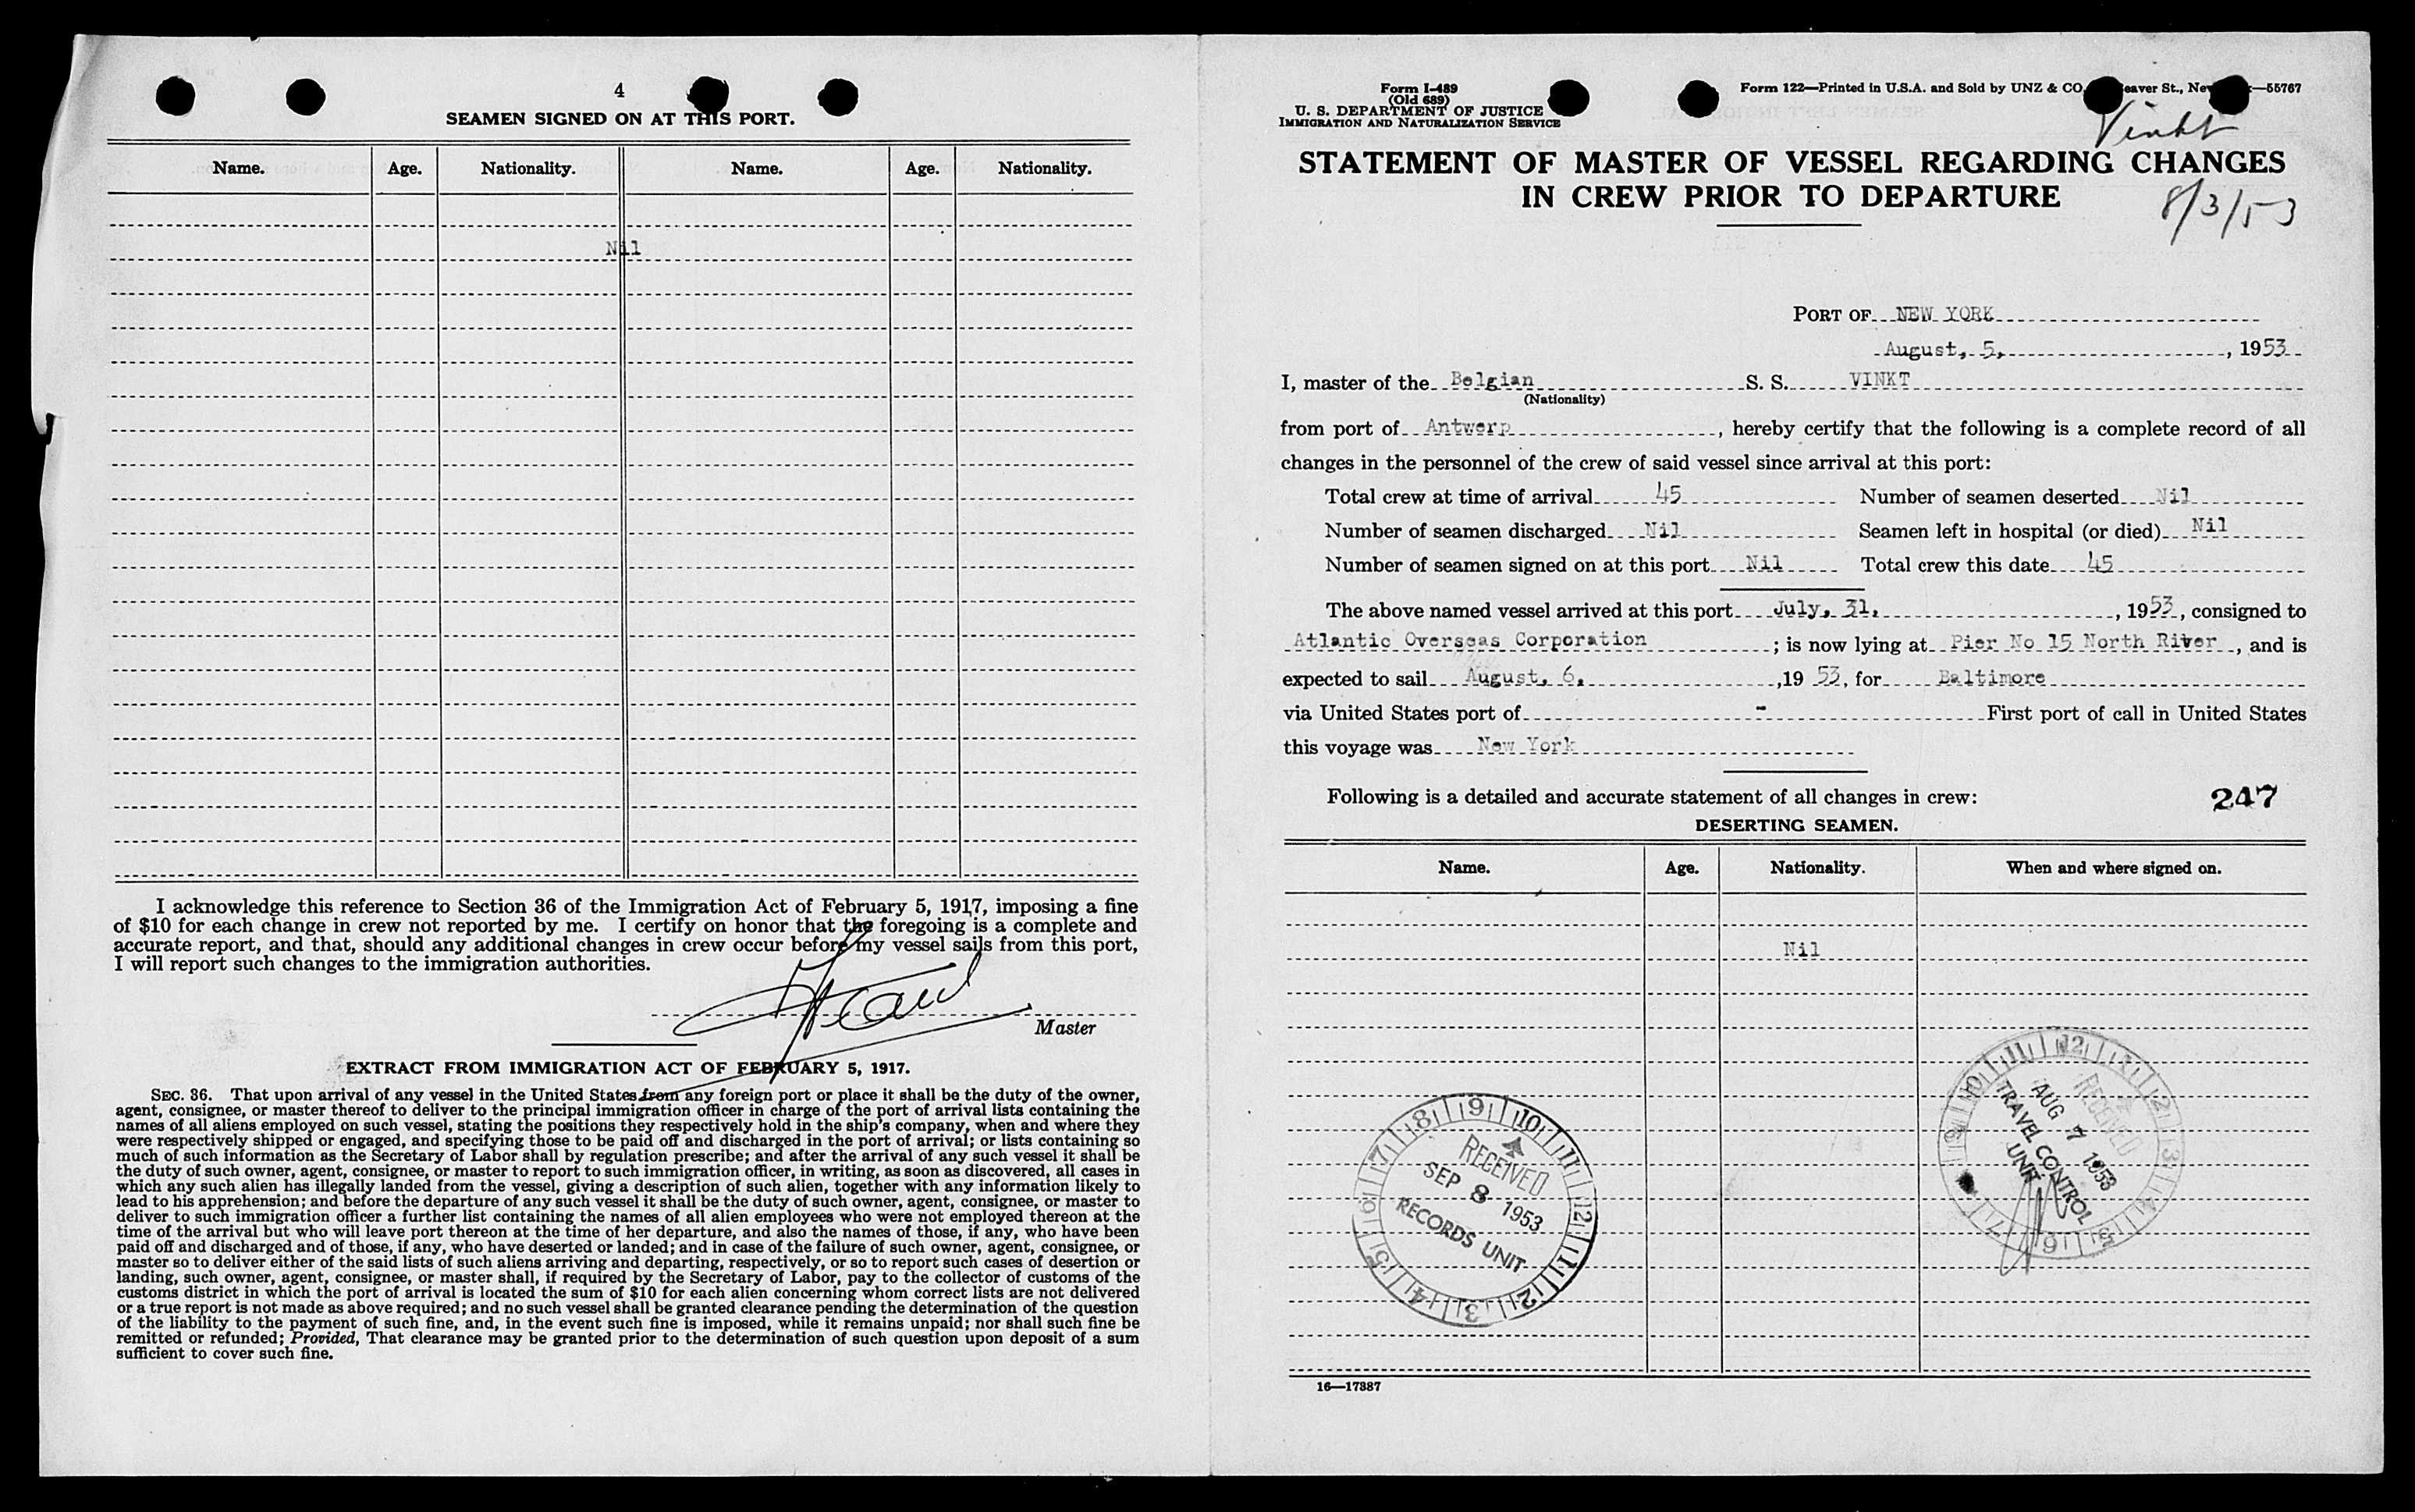 4
SEAMEN SIGNED ON AT THIS PORT.
Name. Age. Nationality. Name. Age. Nationality.
Nil
I acknowledge this reference to Section 36 of the Immigration Act of February 5, 1917, imposing a fine
of $10 for each change in crew not reported by me. I certify on honor that the foregoing is a complete and
accurate report, and that, should any additional changes in crew occur before my vessel sails from this port,
I will report such changes to the immigration authorities.
Master
EXTRACT FROM IMMIGRATION ACT OF FEBRUARY 5, 1917.
SEC. 36. That upon arrival of any vessel in the United States from any foreign port or place it shall be the duty of the owner,
agent, consignee, or master thereof to deliver to the principal immigration officer in charge of the port of arrival lists containing the
names of all aliens employed on such vessel, stating the positions they respectively hold in the ship's company, when and where they
were respectively shipped or engaged, and specifying those to be paid off and discharged in the port of arrival; or lists containing so
much of such information as the Secretary of Labor shall by regulation prescribe; and after the arrival of any such vessel it shall be
the duty of such owner, agent, consignee, or master to report to such immigration officer, in writing, as soon as discovered, all cases in
which any such alien has illegally landed from the vessel, giving a description of such alien, together with any information likely to
lead to his apprehension; and before the departure of any such vessel it shall be the duty of such owner, agent, consignee, or master to
deliver to such immigration officer a further list containing the names of all alien employees who were not employed thereon at the
time of the arrival but who will leave port thereon at the time of her departure, and also the names of those, if any, who have been
paid off and discharged and of those, if any, who have deserted or landed; and in case of the failure of such owner, agent, consignee, or
master so to deliver either of the said lists of such aliens arriving and departing, respectively, or so to report such cases of desertion or
landing, such owner, agent, consignee, or master shall, if required by the Secretary of Labor, pay to the collector of customs of the
customs district in which the port of arrival is located the sum of $10 for each alien concerning whom correct lists are not delivered
or a true report is not made as above required; and no such vessel shall be granted clearance pending the determination of the question
of the liability to the payment of such fine, and, in the event such fine is imposed, while it remains unpaid; nor shall such fine be
remitted or refunded; Provided, That clearance may be granted prior to the determination of such question upon deposit of a sum
sufficient to cover such fine.
Form I-489
(Old 689)
U. S. DEPARTMENT OF JUSTICE
IMMIGRATION AND NATURALIZATION SERVICE
Form 122—Printed in U.S.A. and Sold by UNZ & CO. eaver St., Ne —55767
Vinkt
STATEMENT OF MASTER OF VESSEL REGARDING CHANGES
IN CREW PRIOR TO DEPARTURE
8/3/53
PORT OF NEW YORK
August, 5, , 1953
I, master of the Belgian S. S. VINKT
(Nationality)
from port of Antwerp , hereby certify that the following is a complete record of all
changes in the personnel of the crew of said vessel since arrival at this port:
Total crew at time of arrival 45 Number of seamen deserted Nil
Number of seamen discharged Nil Seamen left in hospital (or died) Nil
Number of seamen signed on at this port Nil Total crew this date 45
The above named vessel arrived at this port July, 31, , 1953, consigned to
Atlantic Overseas Corporation ; is now lying at Pier No 15 North River , and is
expected to sail August, 6, ,19 53, for Baltimore
via United States port of - First port of call in United States
this voyage was New York
Following is a detailed and accurate statement of all changes in crew:
247
DESERTING SEAMEN.
Name. Age. Nationality. When and where signed on.
Nil
9 10 11 12 1 2 3 4 5 6 7 8
RECEIVED
SEP 8 1953
RECORDS UNIT
12 1 2 3 4 5 6 7 8 9 10 11
RECEIVED
AUG 7 1953
TRAVEL CONTROL
UNIT
16—17387